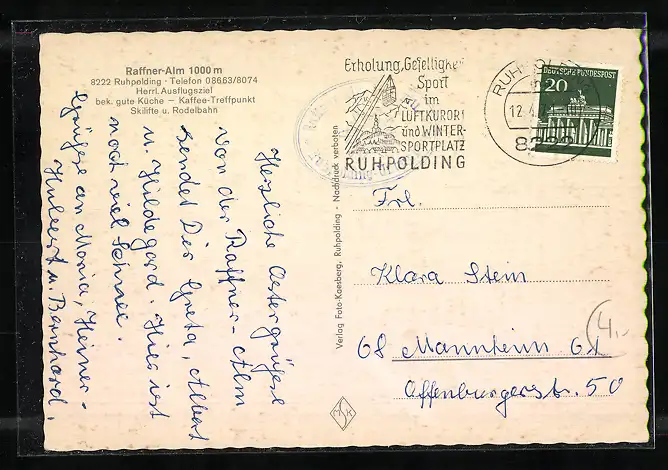 Raffner-Alm 1000 m
8222 Ruhpolding · Telefon 08663/8074
Herrl. Ausflugsziel
bek. gute Küche — Kaffee-Treffpunkt
Skilifte u. Rodelbahn
Herzliche Ostergrüsse
von der Raffner-Alm
sendet Dir Greta, Albert
u. Hildegard. Hier ist
noch viel Schnee.
Grüsse an Monia, Heiner-
Hubert u. Bernhard.
Verlag Foto-Kaesberg, Ruhpolding - Nachdruck verboten
Erholung, Geselligkeit
Sport
im
LUFTKURORT
und WINTER-
SPORTPLATZ
RUHPOLDING
RUHPOLD
12.4
8222
DEUTSCHE BUNDESPOST
20
Frl.
Klara Stein
68 Mannheim 61
Offenburgerstr. 50
4.-